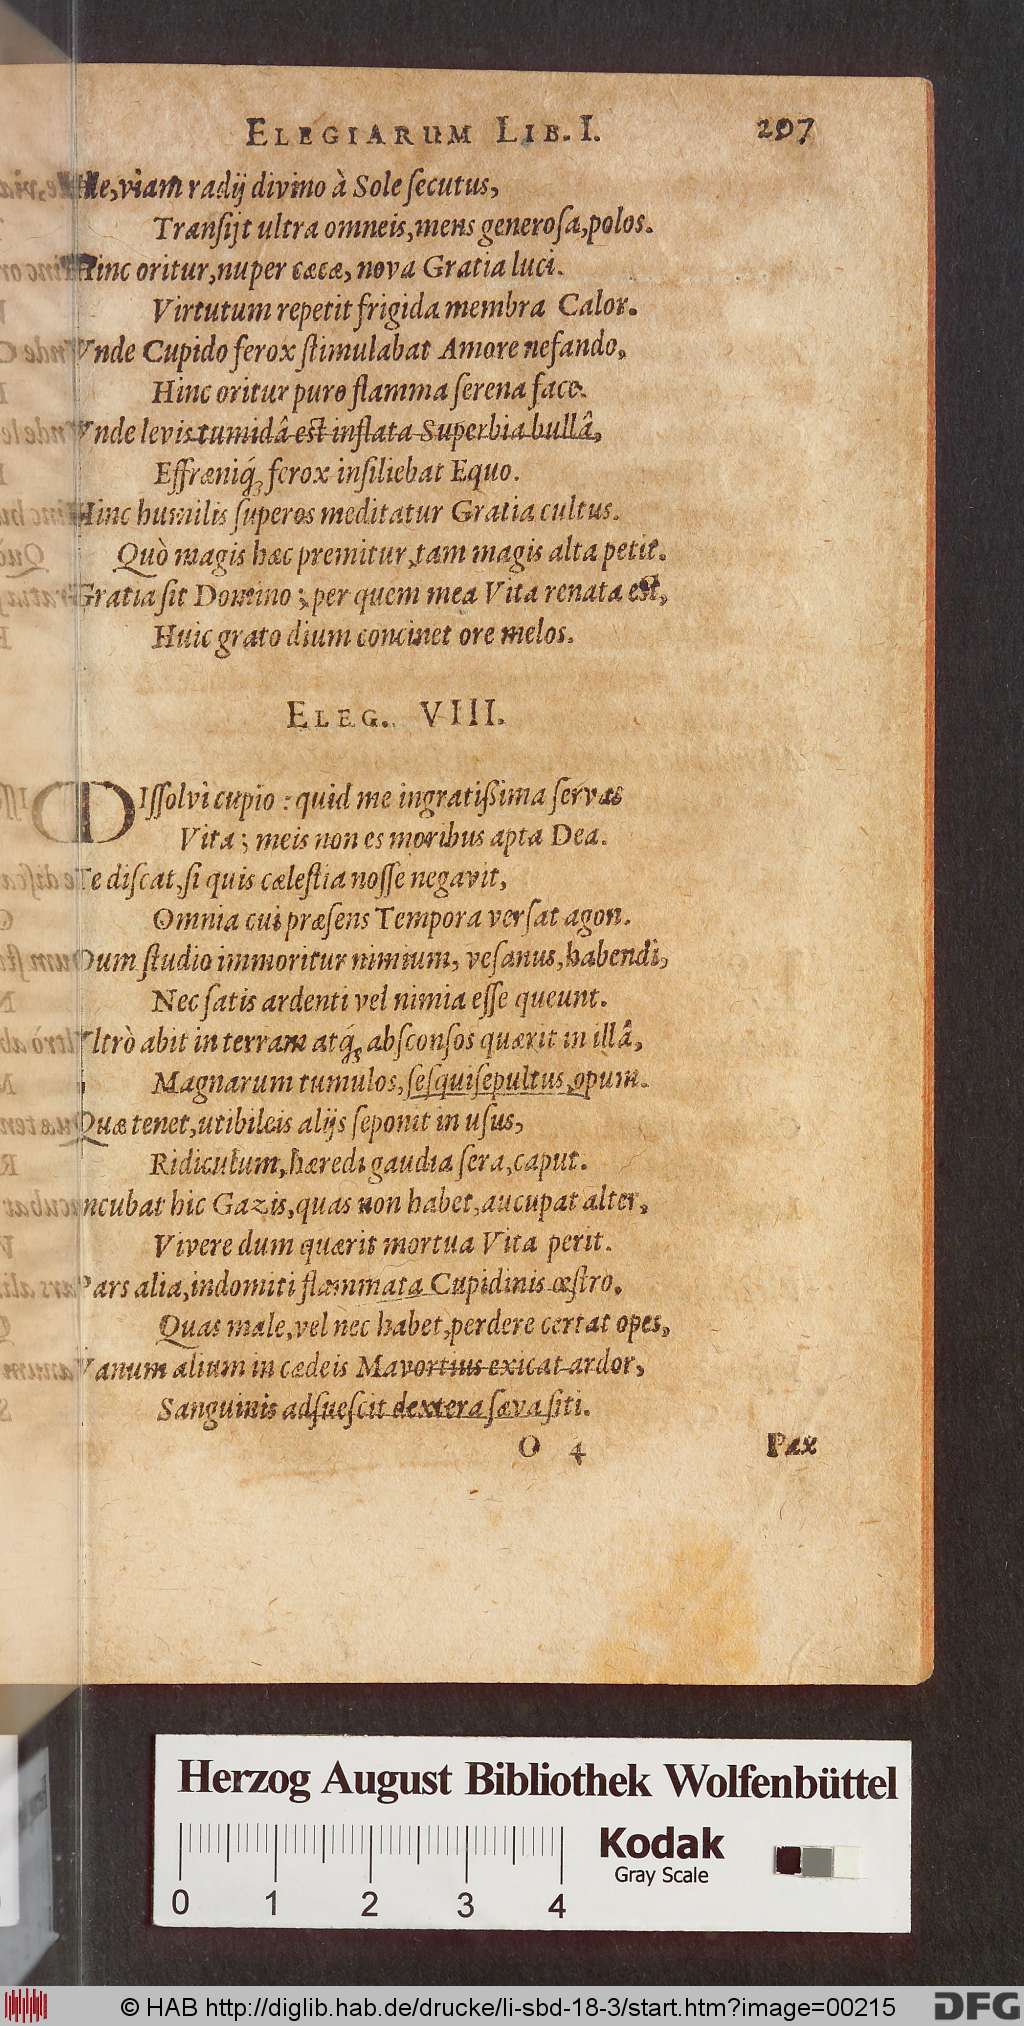 ELEGIARUM LIB. I. 207
Ille, viam radij divino à Sole ſecutus,
Tranſijt ultra omneis, mens generoſa, polos.
Hinc oritur, nuper cæcæ, nova Gratia luci.
Virtutum repetit frigida membra Calor.
Vnde Cupido ferox ſtimulabat Amore nefando,
Hinc oritur puro flamma ſerena face.
Vnde levis tumidâ eſt inflata Superbia bullâ,
Effræniq́; ferox inſiliebat Equo.
Hinc humilis ſuperos meditatur Gratia cultus.
Quò magis hæc premitur, tam magis alta petit.
Gratia ſit Domino; per quem mea Vita renata eſt,
Huic grato dium concinet ore melos.
ELEG. VIII.
DIſſolvi cupio: quid me ingratißima ſervas
Vita; meis non es moribus apta Dea.
Te diſcat, ſi quis cæleſtia noſſe negavit,
Omnia cui præſens Tempora verſat agon.
Dum ſtudio immoritur nimium, veſanus, habendi,
Nec ſatis ardenti vel nimia eſſe queunt.
Vltrò abit in terram atq́; abſconſos quærit in illâ,
Magnarum tumulos, ſeſquiſepultus, opum.
Quæ tenet, utibileis alijs ſeponit in uſus,
Ridiculum, hæredi gaudia ſera, caput.
Incubat hic Gazis, quas non habet, aucupat alter,
Vivere dum quærit mortua Vita perit.
Pars alia, indomiti flammata Cupidinis œſtro.
Quas male, vel nec habet, perdere certat opes,
Vanum alium in cædeis Mavortius exicat ardor,
Sanguinis adſueſcit dextera ſæva ſiti.
O 4 Pax
Herzog August Bibliothek Wolfenbüttel
Kodak
Gray Scale
0 1 2 3 4
© HAB http://diglib.hab.de/drucke/li-sbd-18-3/start.htm?image=00215 DFG